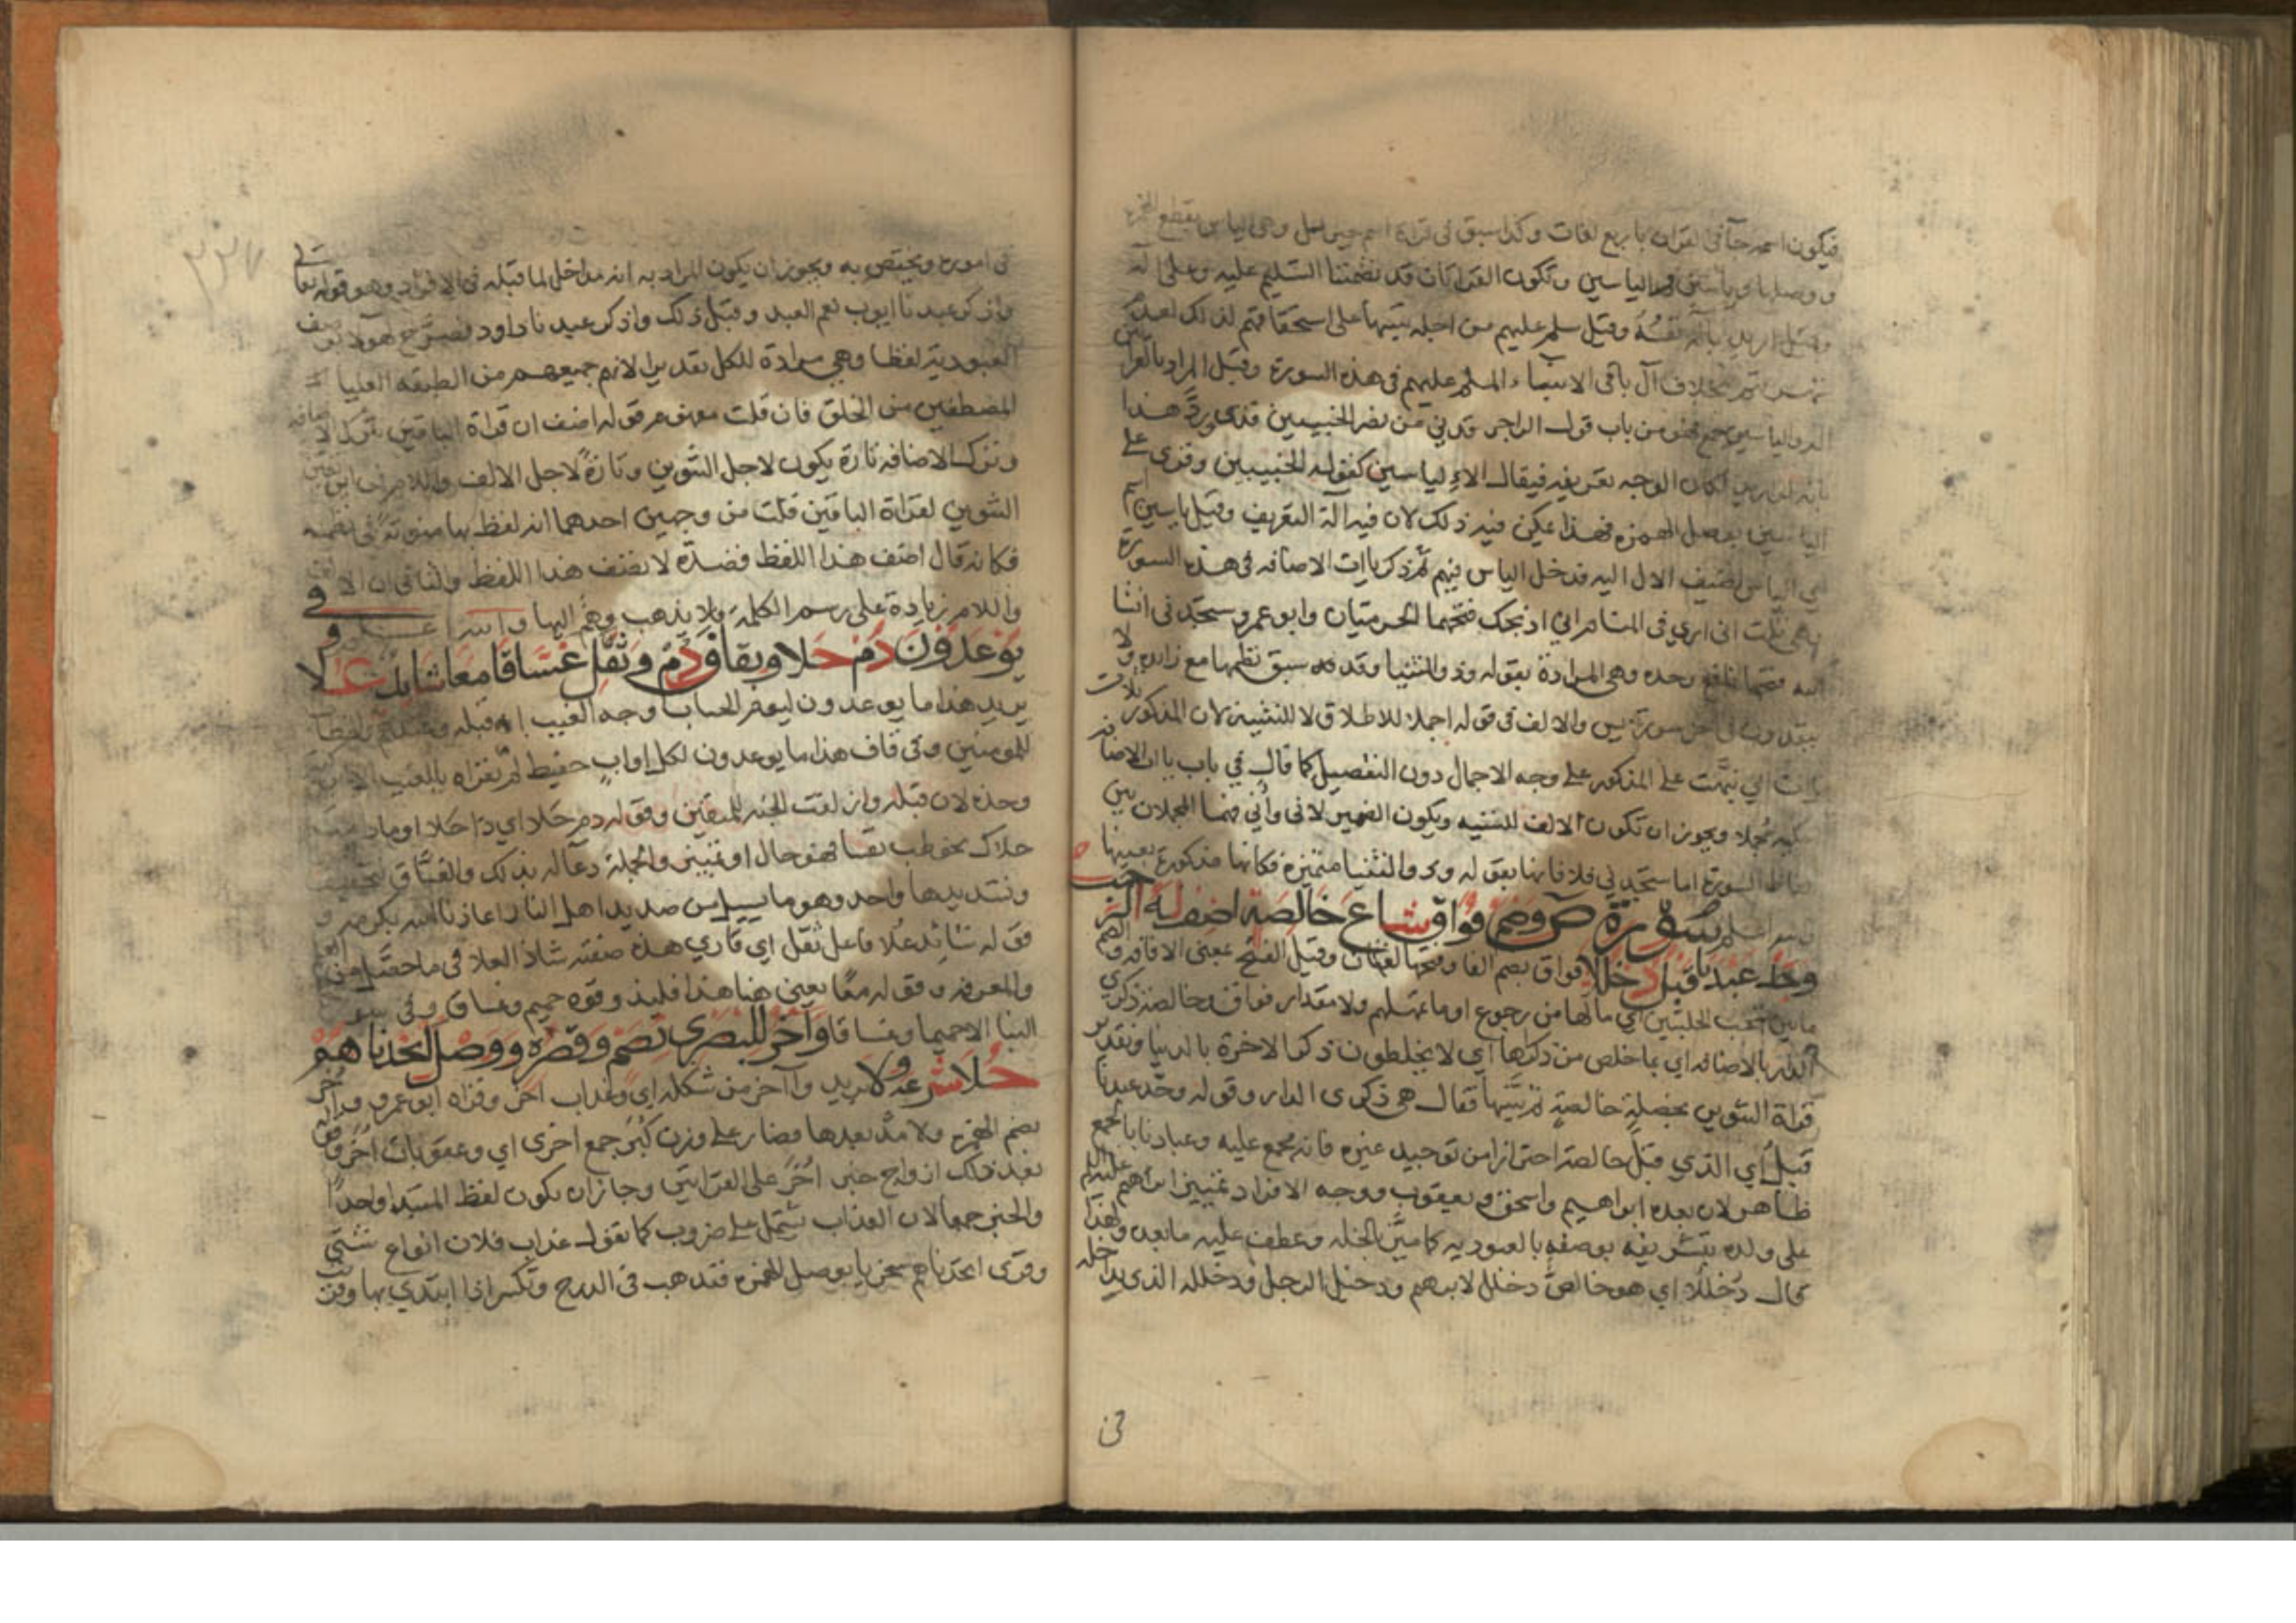 فيكون اسمه جآ في القران باربع لغات وكذا سبق في قراة اسم جبريل وهي الياس بقطع الهمزة
ووصلها وياسين والياسين وتكون القرااتان قد تضمنتا التسليم عليه وعلى آله
وقيل اريد بآله نفسُهُ وقيل سلم عليهم من اجله تنبيها على استحقاقهم لذلك لعدم
بخلاف آل باقي الانبياء المسلم عليهم في هذه السورة وقيل المراد بالقراتين
الياسين جمع فهو من باب قول الراجز قدني من نصر الخبيبين قدى وردّ هذا
بانه لو اريد لكان الوجه تعريفه فيقال الالياسين كقوله الخبيبين وقرى على
الياسين بوصل الهمزه فهذا يمكن فيه ذلك لان فيه آلة التعريف وقيل ياسين اسم
ابي الياس اضيف الال اليه فدخل الياس فيهم ثم ذكر ياات الاضافه في هذه السورة
وهي ثلث انى ارى في المنام اني اذبحك فتحهما الحرميان وابو عمرو ستجدني انشا
الله فتحها نافع وحده وهي المرادة بقوله وذو الثنيا وقد سبق نظمها مع زايده ولا
في اخر سورة يس والالف في قوله اجملا للاطلاق لا للتثنية لان المذكور ثلاث
ياات اي نبهت على المذكور على وجه الاجمال دون التفصيل كما قال في باب ياات الاضافه
مجملا ويجوز ان تكون الالف للتثنيه ويكون الضمير لاني وأني فهما المجملان بين
الفاظ السورة اما ستجدني فلا فانها بقوله وذو الثنيا متميزة فكانها مذكورة بعينها
سورة ص وضم فواق شاع خالصة اضف له الرحب
وحد عبدنا قبل دخللا فواق بضم الفا وفتحها لغتان وقيل الفتح بمعنى الافاقه والضم
ما بين الحلبتين اي ما لها من رجوع او ما تمهلهم ولا مقدار فواق وخالصة ذكرى
الدار بالاضافه اي بما خلص من ذكراها اي لا يخلطون ذكر الاخرة بالدنيا وتقدير
قراة التنوين بخصلةٍ خالصةٍ ثم بيّنها فقال هي ذكرى الدار وقوله وحّد عبدنا
قبلُ اي الذي قبل خالصة احترازا من توحيد غيره فانه مجمع عليه وعبادنا بالجمع
ظاهر لان بعده ابراهيم واسحق ويعقوب ووجه الافراد تمييز ابراهيم عليه السلم
على ولده بتشريفه بوصفه بالعبوديه كما ميّز بالخله وعطف عليه ما بعده ولهذا
قال دُخللا اي هو خالصٌ دخلل لابرهم ودخيل الرجل ودخلله الذي يداخله
في
في اموره ويختص به ويجوز ان يكون المراد به انه مداخل لما قبله في الافراد وهو قوله تعالى
واذكر عبدنا ايوب نعم العبد وقبل ذلك واذكر عبدنا داود فصرّح هولا بوصف
العبودية لفظا وهي مرادة للكل تقديرا لانهم جميعهم من الطبقه العليا
المصطفين من الخلق فان قلت من قوله اضف ان قراة الباقين بترك الاضافه
وترك الاضافه تارة يكون لاجل التنوين وتارةً لاجل الالف واللام فمن اين تعين
التنوين لقراة الباقين قلت من وجهين احدهما انه لفظ بها منونةً في نظمه
فكانه قال اضف هذا اللفظ فضدّه لا تضف هذا اللفظ والثاني ان الالف
واللام زيادة على رسم الكلمة ولا يذهب وهمٌ اليها والله اعلم
وفي يوعدون دم حلا وبقاف دُم وثقل غساقا معا شايد علا
يريد هذا ما يوعدون ليوم الحساب وجه الغيب ان قبله وعندهم
للمومنين وفي قاف هذا ما يوعدون لكل اواب حفيظ لم يقراه بالغيب الا ابن كثير
وحده لان قبله وازلفت الجنه للمتقين وقوله دم حلا اي ذا حلا او دام
حلاك فهو حال او تمييز والجملة دعآ له بذلك والغسّاق بتخفيف
وتشديدها واحد وهو ما يسيل من صديد اهل النار اعاذنا الله بكرمه
قوله شائدُ عُلا فاعل ثقل اي قاري هذه صفته شاد العلا في ما حصّله من العلم
والمعرفه وقوله معًا يعني هنا هذا فليذوقوه حميم وغساق وفي سورة
النبا الا حميما وغساقا وآخر للبصري بضم وقصره ووصل اتخذناهم
حلا شرعه ولا يريد وآخر من شكله اي وعذاب اخر وقراه ابو عمرو واخر
بضم الهمزه ولا مدّ بعدها فصار على وزن كُبَر جمع اخرى اي وعقوبات اُخر وقوله
بعد ذلك ازواج خبر اُخر على القراتين وجاز ان يكون لفظ المبتدا واحداً
والخبر جمعا لان العذاب يشتمل على ضروب كما تقول عذاب فلان انواع شتى
وقرى اتخذناهم سخريا بوصل الهمزه فتذهب في الدرج وتكسر اذا ابتدي بها وقرى